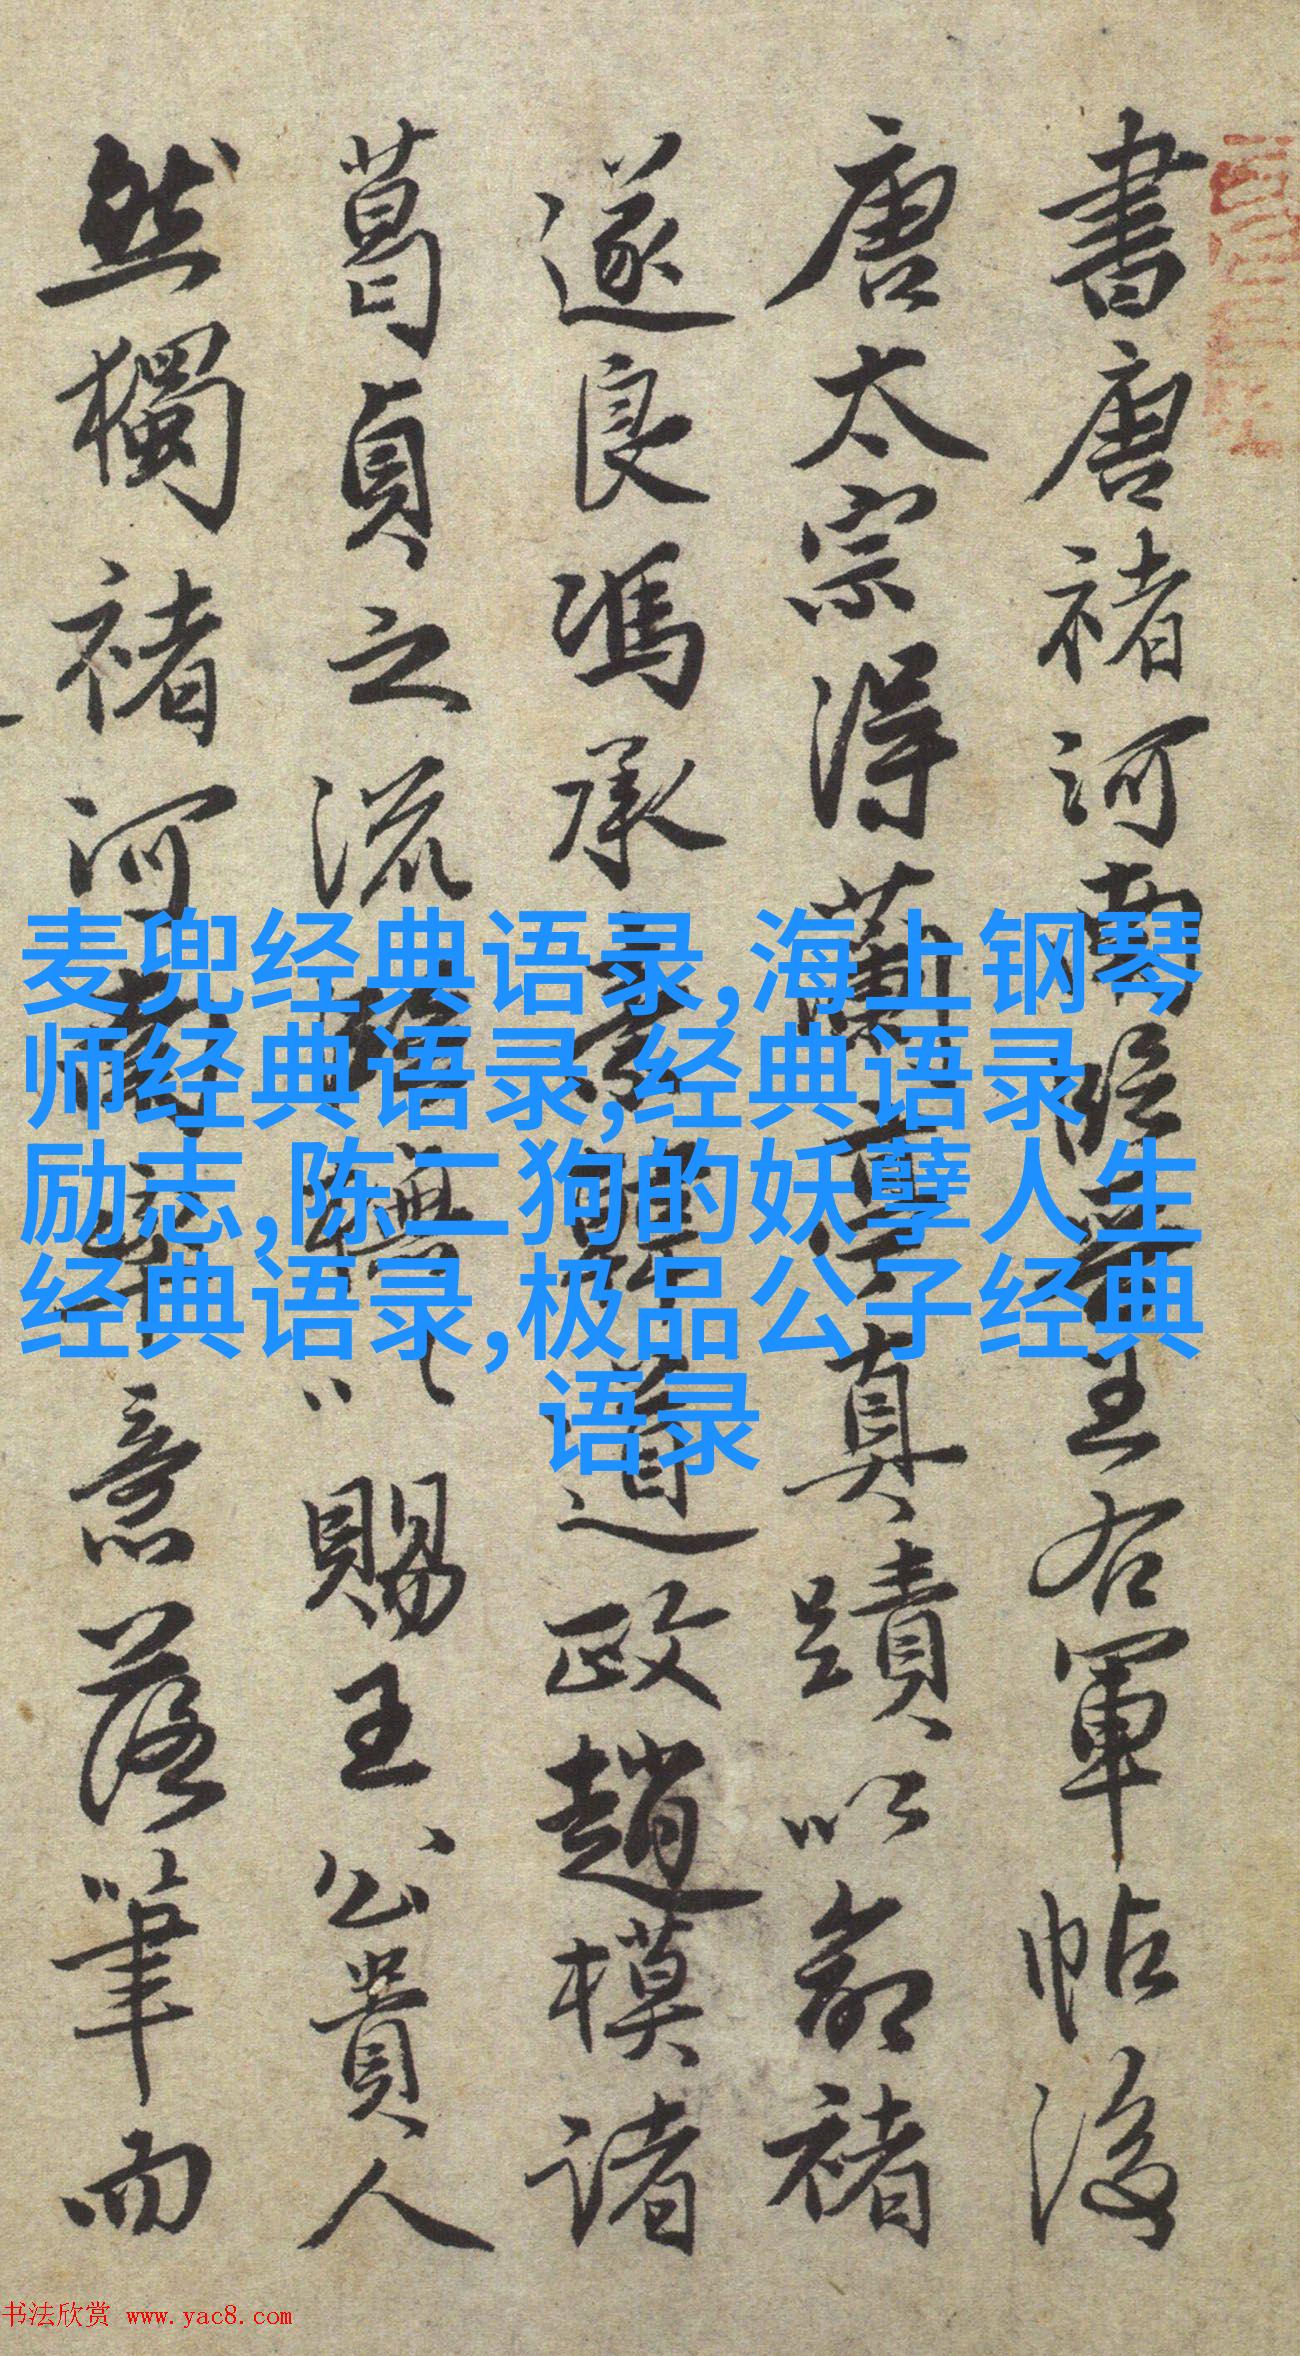 書唐褚河南臨晉王右軍帖後
唐太宗得蘭亭真蹟以命褚
遂良馮承素韓道政趙模諸
葛貞之流橅以賜王公貴人
然獨褚河南率意落筆而
麦兜经典语录,海上钢琴
师经典语录,经典语录
励志,陈二狗的妖孽人生
经典语录,极品公子经典
语录
书法欣赏 www.yac8.com